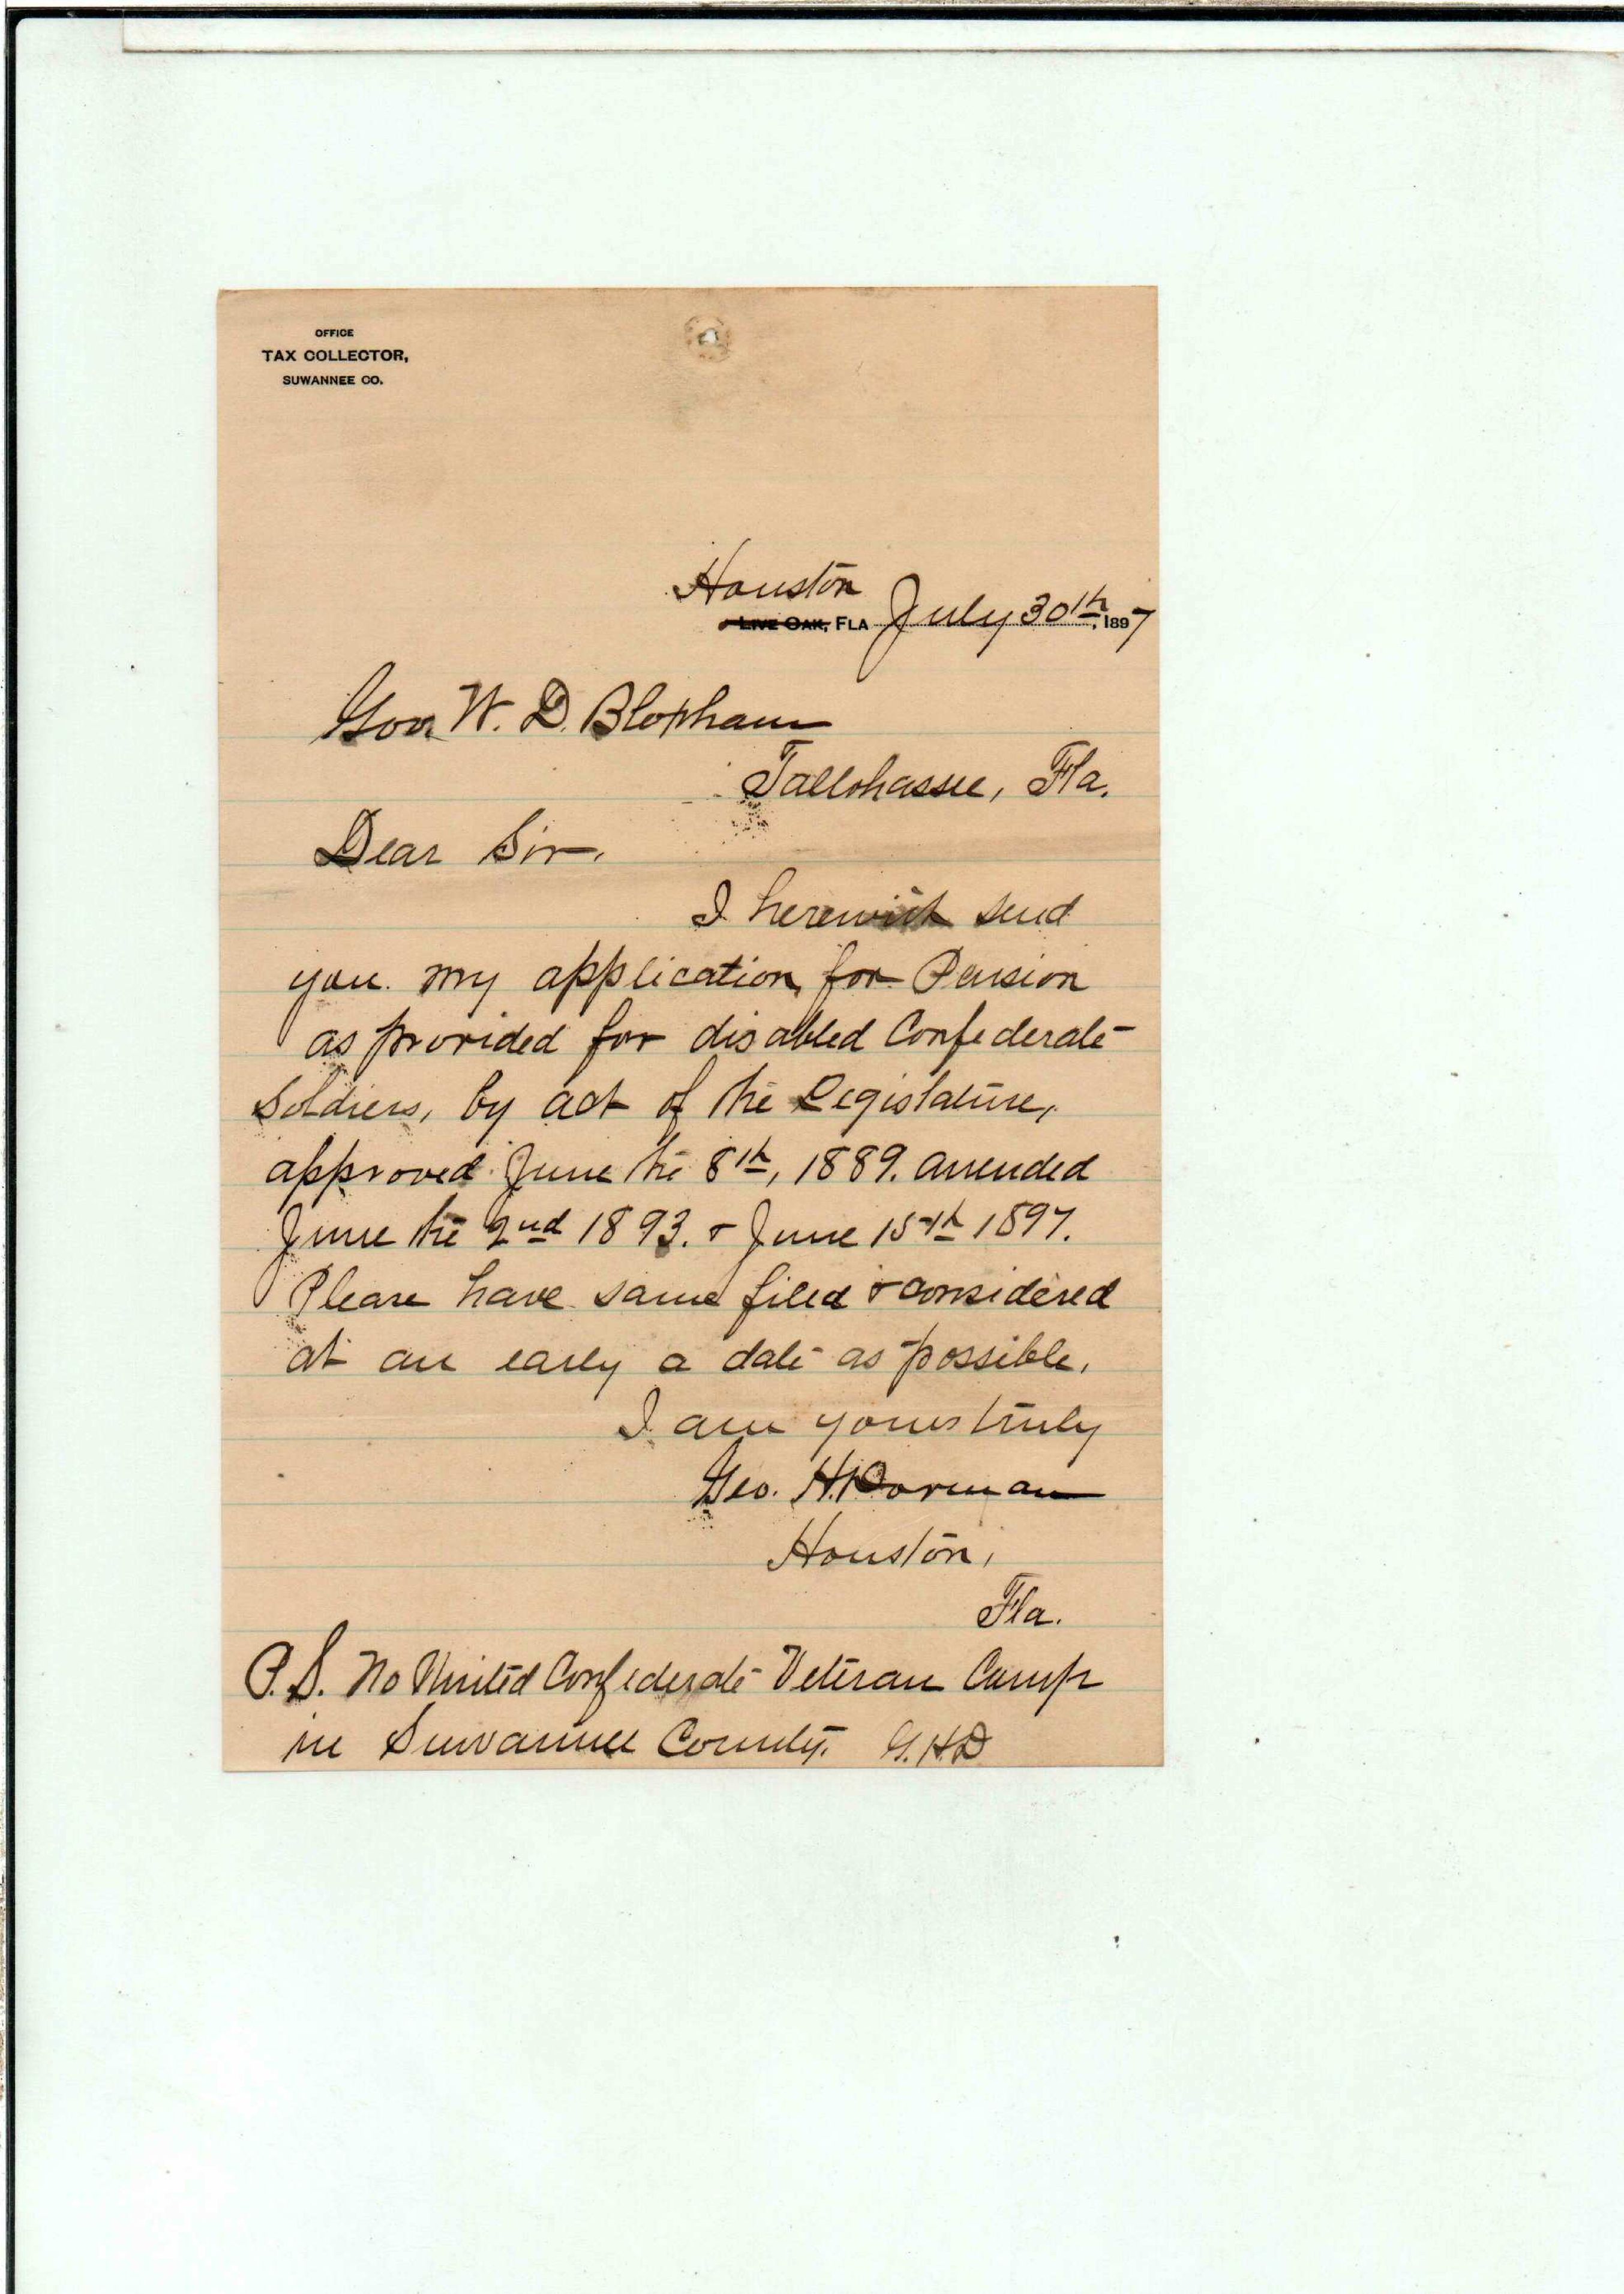 OFFICE
TAX COLLECTOR,
SUWANNEE CO.
Houston
LIVE OAK, FLA July 30th, 1897
Gov. W. D. Bloxham
Tallohassee, Fla.
Dear Sir.
I herewith send
you my application for Pension
as provided for disabled Confederate
Soldiers, by act of the Legislature,
approved June the 8th, 1889. amended
June the 2nd 1893. & June 15th 1897.
Please have same filed & considered
at an early a date as possible.
I am yours truly
Geo. H. Dorman
Houston,
Fla.
P.S. No United Confederate Veteran Camp
in Suwannee County. G.H.D